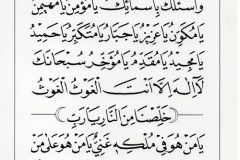 وَاَسْئَلُكَ بِاَسْمَائِكَ يَا مُؤْمِنُ يَا مُهَيْمِنُ
يَا مُكَوِّنُ يَا عَزِيزُ يَا جَبَّارُ يَا مُتَكَبِّرُ يَا حَمِيدُ
يَا مَجِيدُ يَا مُقَدِّمُ يَا مُؤَخِّرُ سُبْحَانَكَ
لَآ اِلٰهَ اِلَّا اَنْتَ الْغَوْثُ الْغَوْثُ
خَلِّصْنَا مِنَ النَّارِ يَا رَبِّ
يَا مَنْ هُوَ فِي مُلْكِهِ غَنِيٌّ يَا مَنْ هُوَ عَلٰى مَنْ